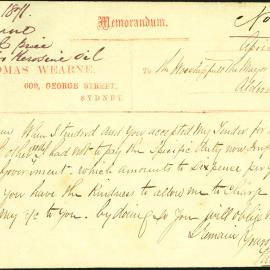 1871
Memorandum.
price
Kerosine Oil
OMAS WEARNE,
609, GEORGE STREET,
SYDNEY.
Apri
To the Worshipfull the Mayor
Alderm
When I tendered and you accepted My Tender for
other I had not to pay the Specific Duty now
overnment, which amounts to Sixpence per
you have the Kindness to allow me to Charge
my a/c to you. by doing so you will oblige
I Remain Yours